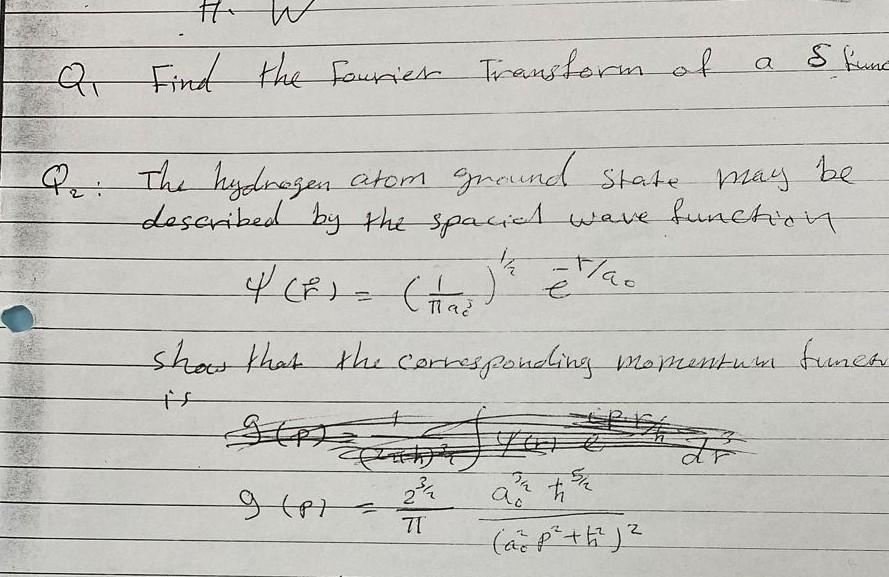 H. W
Q1 Find the Fourier Transform of a δ func
Q2: The hydrogen atom ground state may be
described by the spacial wave function
ψ(r⃗) = (1/πa₀³)^1/2 e^-r/a₀
show that the corresponding momentum funct
is
g(p) = 1/(2πħ)^3/2 ∫ ψ(r) e^ip.r/ħ d³r
g(p) = 2^3/2/π a₀^3/2 ħ^5/2/(a₀²p²+ħ²)²